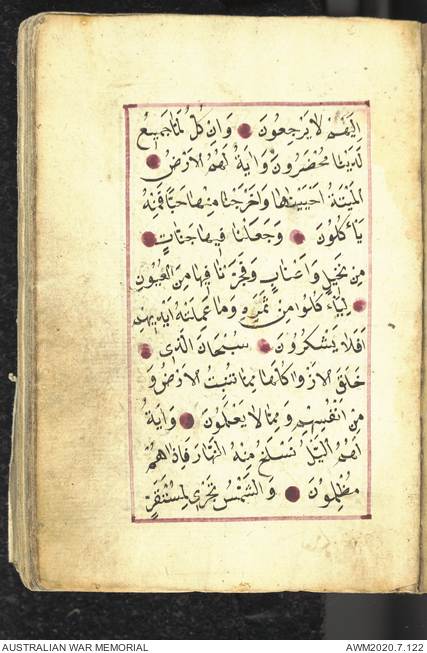 اِلَيْهِمْ لَا يَرْجِعُونَ وَاِنْ كُلٌّ لَمَّا جَمِيعٌ
لَدَيْنَا مُحْضَرُونَ وَاٰيَةٌ لَهُمُ الْاَرْضُ
الْمَيْتَةُ اَحْيَيْنَاهَا وَاَخْرَجْنَا مِنْهَا حَبًّا فَمِنْهُ
يَأْكُلُونَ وَجَعَلْنَا فِيهَا جَنَّاتٍ
مِنْ نَخِيلٍ وَاَعْنَابٍ وَفَجَّرْنَا فِيهَا مِنَ الْعُيُونِ
لِيَأْكُلُوا مِنْ ثَمَرِهِ وَمَا عَمِلَتْهُ اَيْدِيهِمْ
اَفَلَا يَشْكُرُونَ سُبْحَانَ الَّذِي
خَلَقَ الْاَزْوَاجَ كُلَّهَا مِمَّا تُنْبِتُ الْاَرْضُ وَ
مِنْ اَنْفُسِهِمْ وَمِمَّا لَا يَعْلَمُونَ وَاٰيَةٌ
لَهُمُ الَّيْلُ نَسْلَخُ مِنْهُ النَّهَارَ فَاِذَا هُمْ
مُظْلِمُونَ وَالشَّمْسُ تَجْرِي لِمُسْتَقَرٍّ
AUSTRALIAN WAR MEMORIAL
AWM2020.7.122